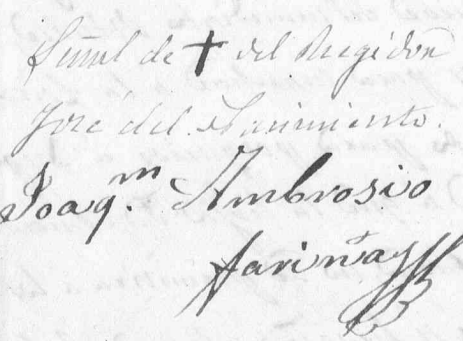 Señal de † del Regidor
José del Nacimiento.
Joaqm. Ambrosio
Farinas